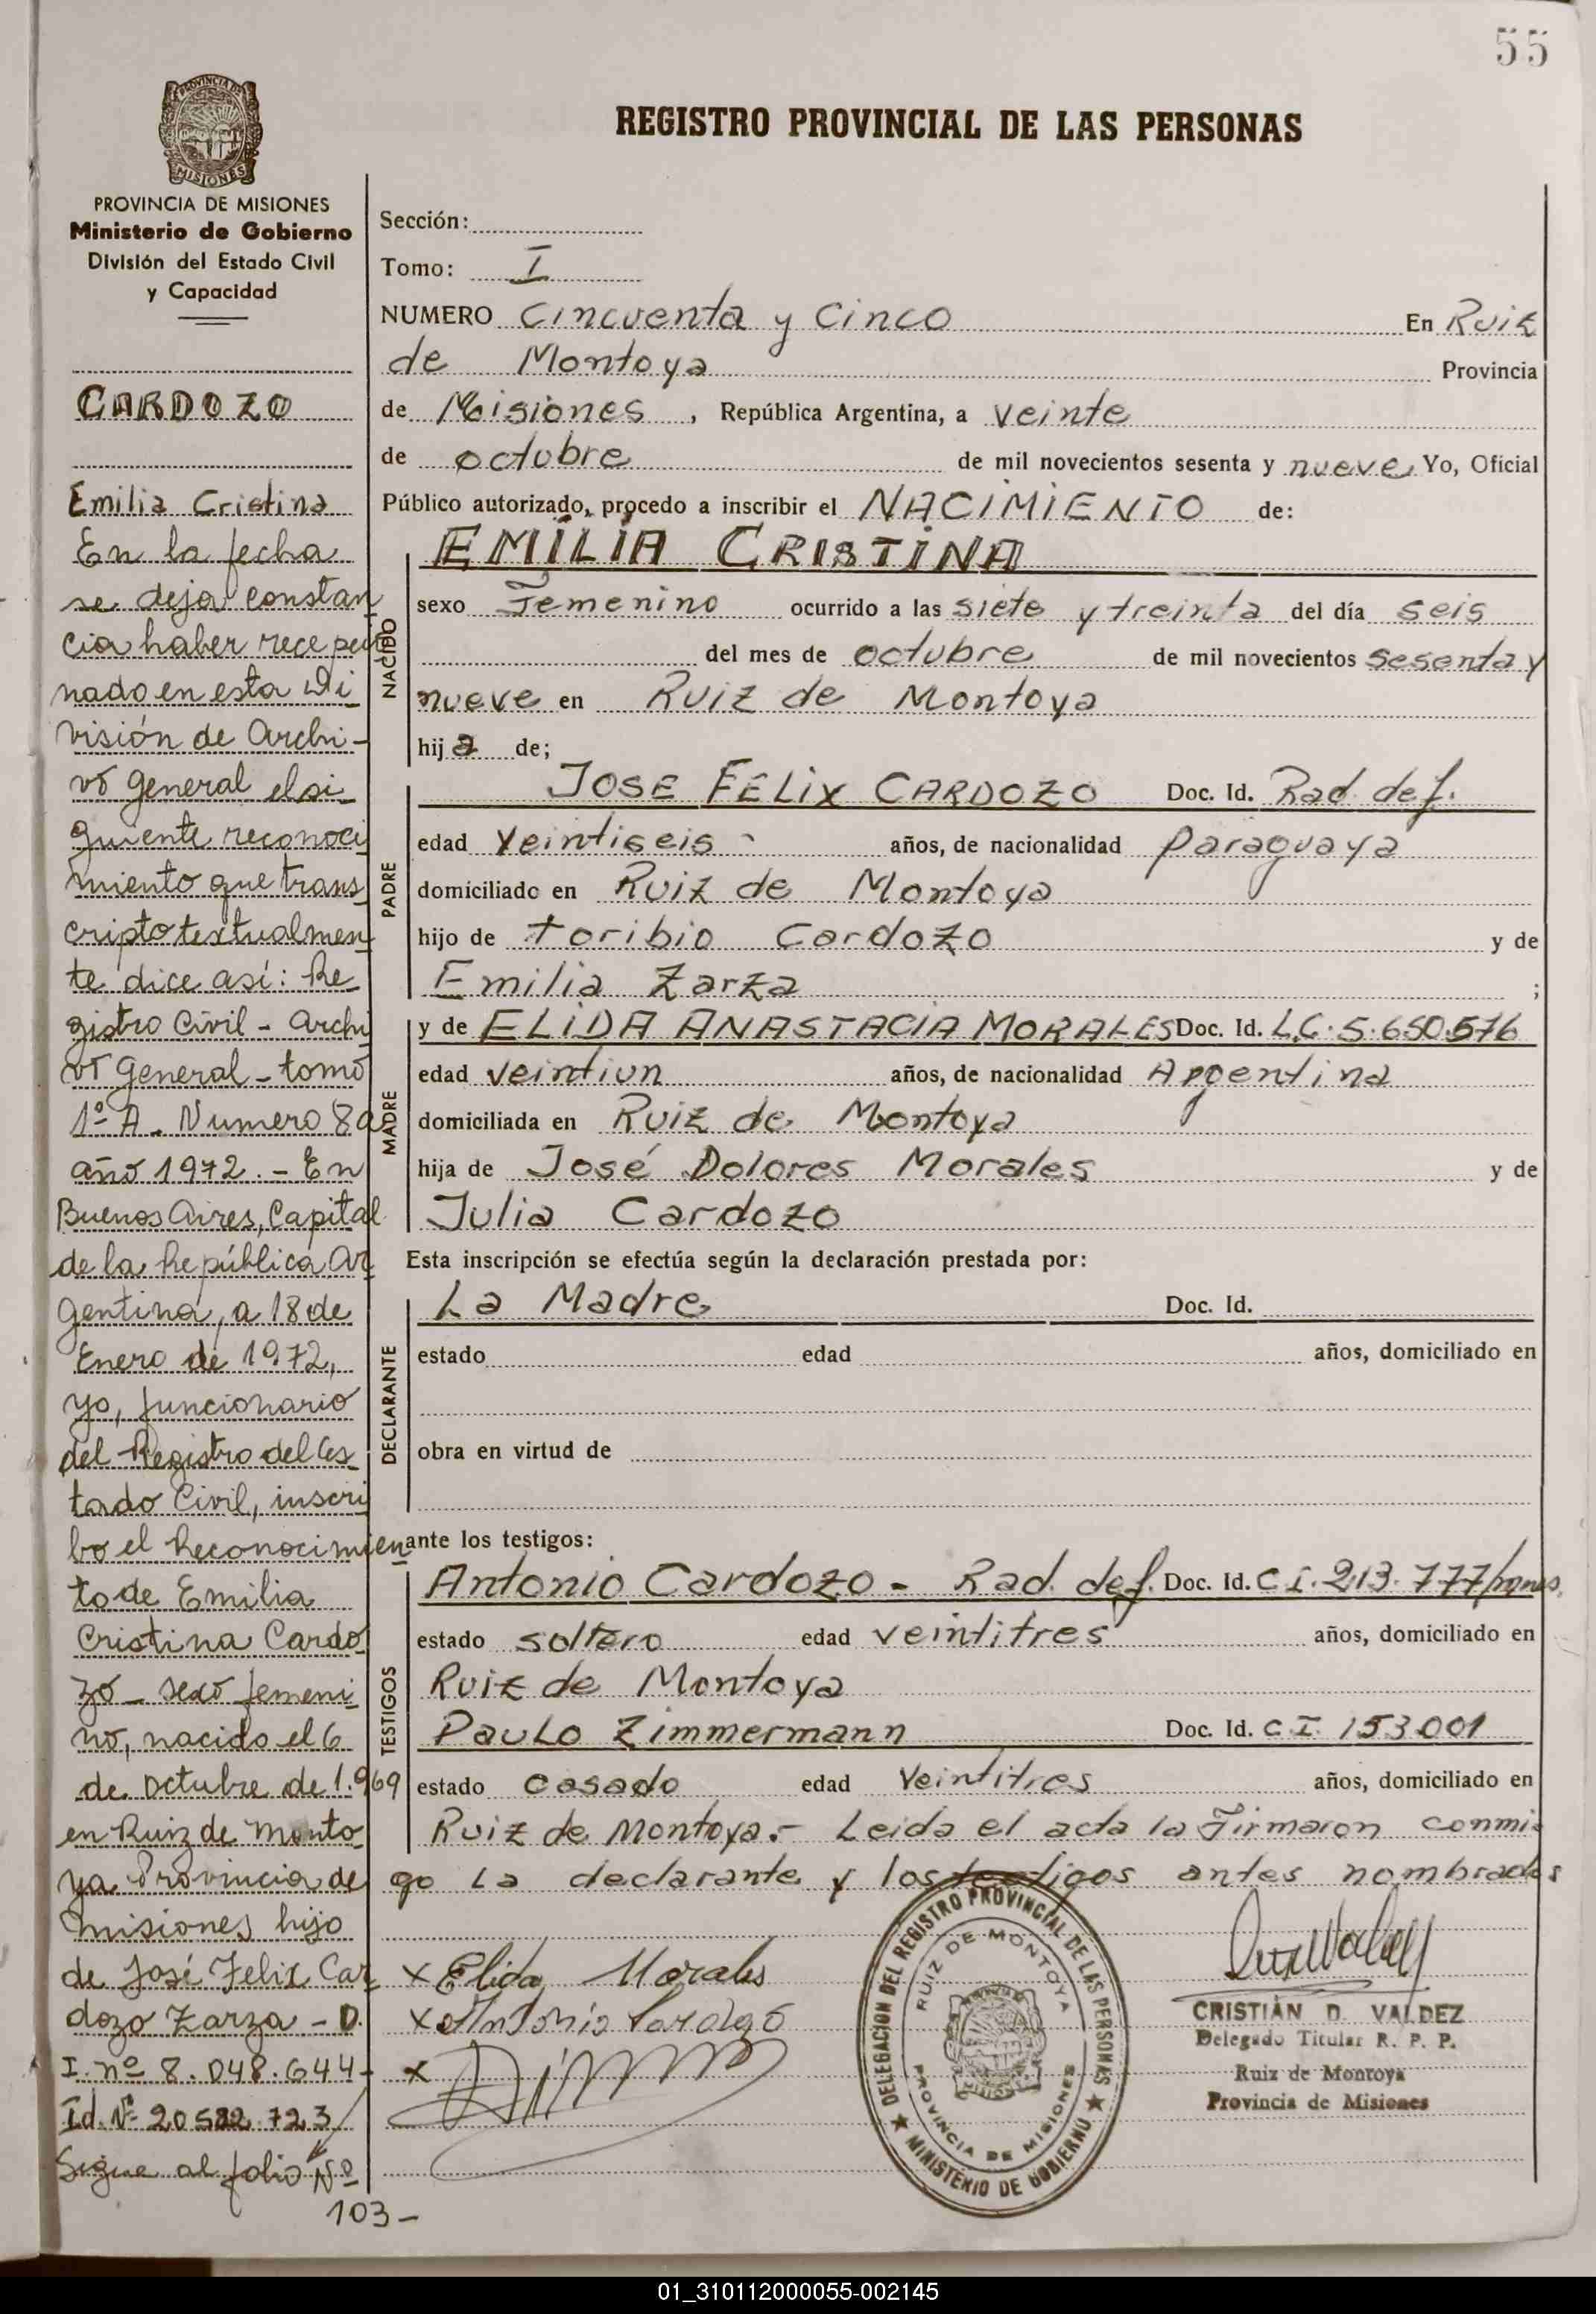 55
REGISTRO PROVINCIAL DE LAS PERSONAS
PROVINCIA DE
MISIONES
PROVINCIA DE MISIONES
Ministerio de Gobierno
División del Estado Civil
y Capacidad
CARDOZO
Emilia Cristina
En la fecha
se deja constan
cia haber recepcio
nado en esta Di
visión de Archi-
vo General el si-
guiente reconoci
miento que trans
cripto textualmen
te dice así: Re
gistro Civil - Archi
vo General - tomo
1º A. Numero 80
año 1972. - En
Buenos Aires, Capital
de la República Ar
gentina, a 18 de
Enero de 1972,
yo, funcionario
del Registro del Es
tado Civil, inscri
bo el Reconocimien
to de Emilia
Cristina Cardo
zo - sexo femeni
no, nacido el 6
de octubre de 1.969
en Ruiz de Monto
ya Provincia de
Misiones hijo
de José Felix Car
dozo Zarza - D.
I. nº 8.048.644-
Id. Nº 20582.723/
Sigue al folio Nº
103-
Sección:
Tomo: I
NUMERO Cincuenta y Cinco En Ruiz
de Montoya Provincia
de Misiones, República Argentina, a veinte
de octubre de mil novecientos sesenta y nueve Yo, Oficial
Público autorizado, procedo a inscribir el NACIMIENTO de:
NACIDO
EMILIA CRISTINA
sexo Femenino ocurrido a las siete y treinta del día seis
del mes de octubre de mil novecientos sesenta y
nueve en Ruiz de Montoya
hija de;
PADRE
JOSE FELIX CARDOZO Doc. Id. Rad. def.
edad Veintiseis - años, de nacionalidad paraguaya
domiciliado en Ruiz de Montoya
hijo de Toribio Cardozo y de
Emilia Zarza ;
MADRE
y de ELIDA ANASTACIA MORALES Doc. Id. L.C. 5.650.576
edad veintiun años, de nacionalidad Argentina
domiciliada en Ruiz de Montoya
hija de José Dolores Morales y de
Julia Cardozo
Esta inscripción se efectúa según la declaración prestada por:
DECLARANTE
La Madre Doc. Id.
estado edad años, domiciliado en
obra en virtud de
ante los testigos:
TESTIGOS
Antonio Cardozo - Rad. def. Doc. Id. C.I. 213.777/
estado soltero edad veintitres años, domiciliado en
Ruiz de Montoya
Paulo Zimmermann Doc. Id. C.I. 153.001
estado casado edad Veintitres años, domiciliado en
Ruiz de Montoya.- Leida el acta la Firmaron conmi
go La declarante y los testigos antes nombrados
x Elida Morales
x Antonio Cardozo
x
DELEGACION DEL REGISTRO PROVINCIAL DE LAS PERSONAS
MINISTERIO DE GOBIERNO
RUIZ DE MONTOYA
PROVINCIA DE MISIONES
CRISTIAN D. VALDEZ
Delegado Titular R. P. P.
Ruiz de Montoya
Provincia de Misiones
01_310112000055-002145